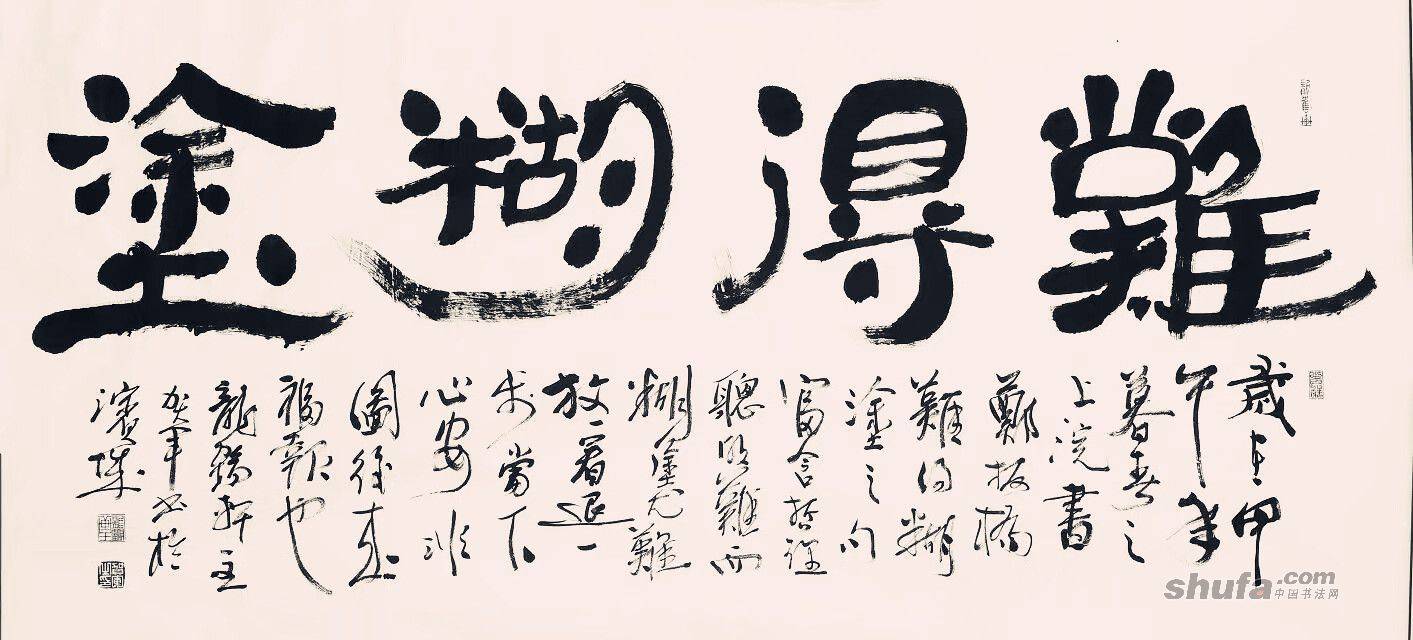 難得糊塗
歲在甲
午年
暮春之
上浣書
鄭板橋
難得糊
塗之句
富含哲理
聰明難而
糊塗尤難
放一着退一
步當下
心安非
圖後來
福報也
龍
軍書於
濱城
shufa.com
中国书法网